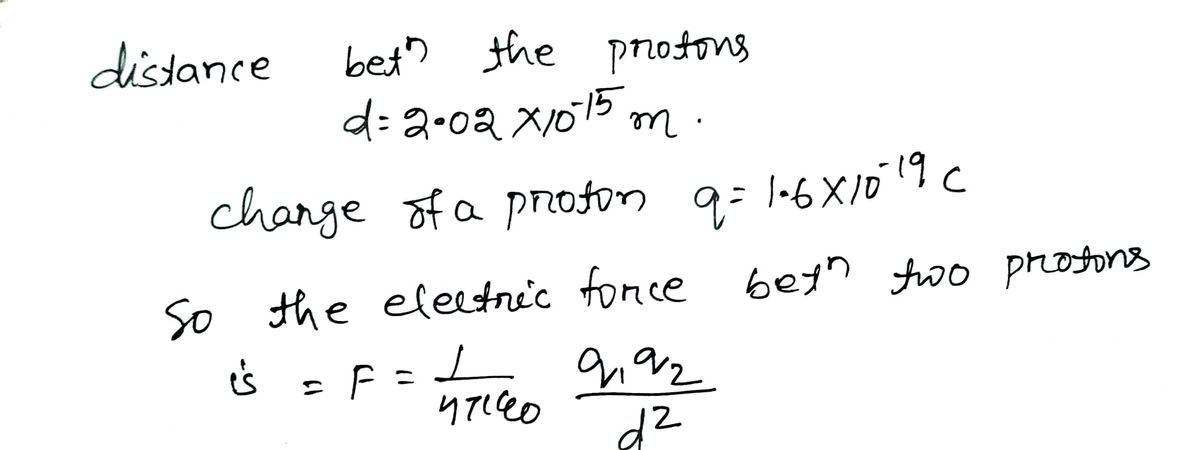 distance betⁿ the protons
d = 2.02 × 10⁻¹⁵ m.
charge of a proton q = 1.6 × 10⁻¹⁹ C
So the electric force betⁿ two protons
is = F = 1/4πε0 q1q2/d²